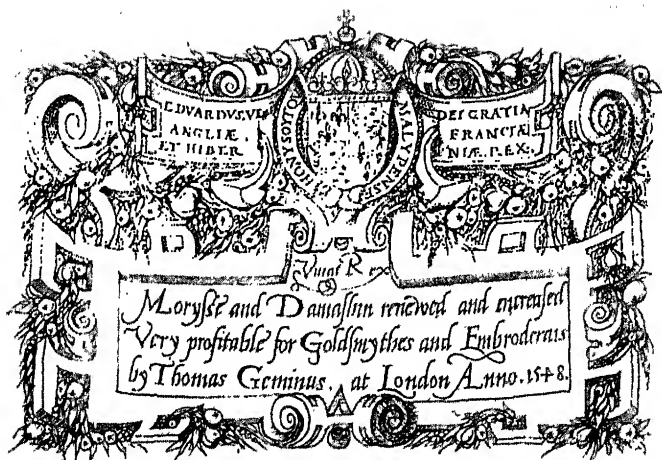 EDVARDVS.VI
ANGLIÆ.
ET HIBER
HONI SOIT QVI MAL Y PENSE
DEI GRATIA
FRANCIÆ
NIÆ.REX.
Vivat Rex
Moryſſe and Damaſhin renewed and encreaſed
Very profitable for Goldſmythes and Embroderars
by Thomas Geminus. at London Anno.1548.